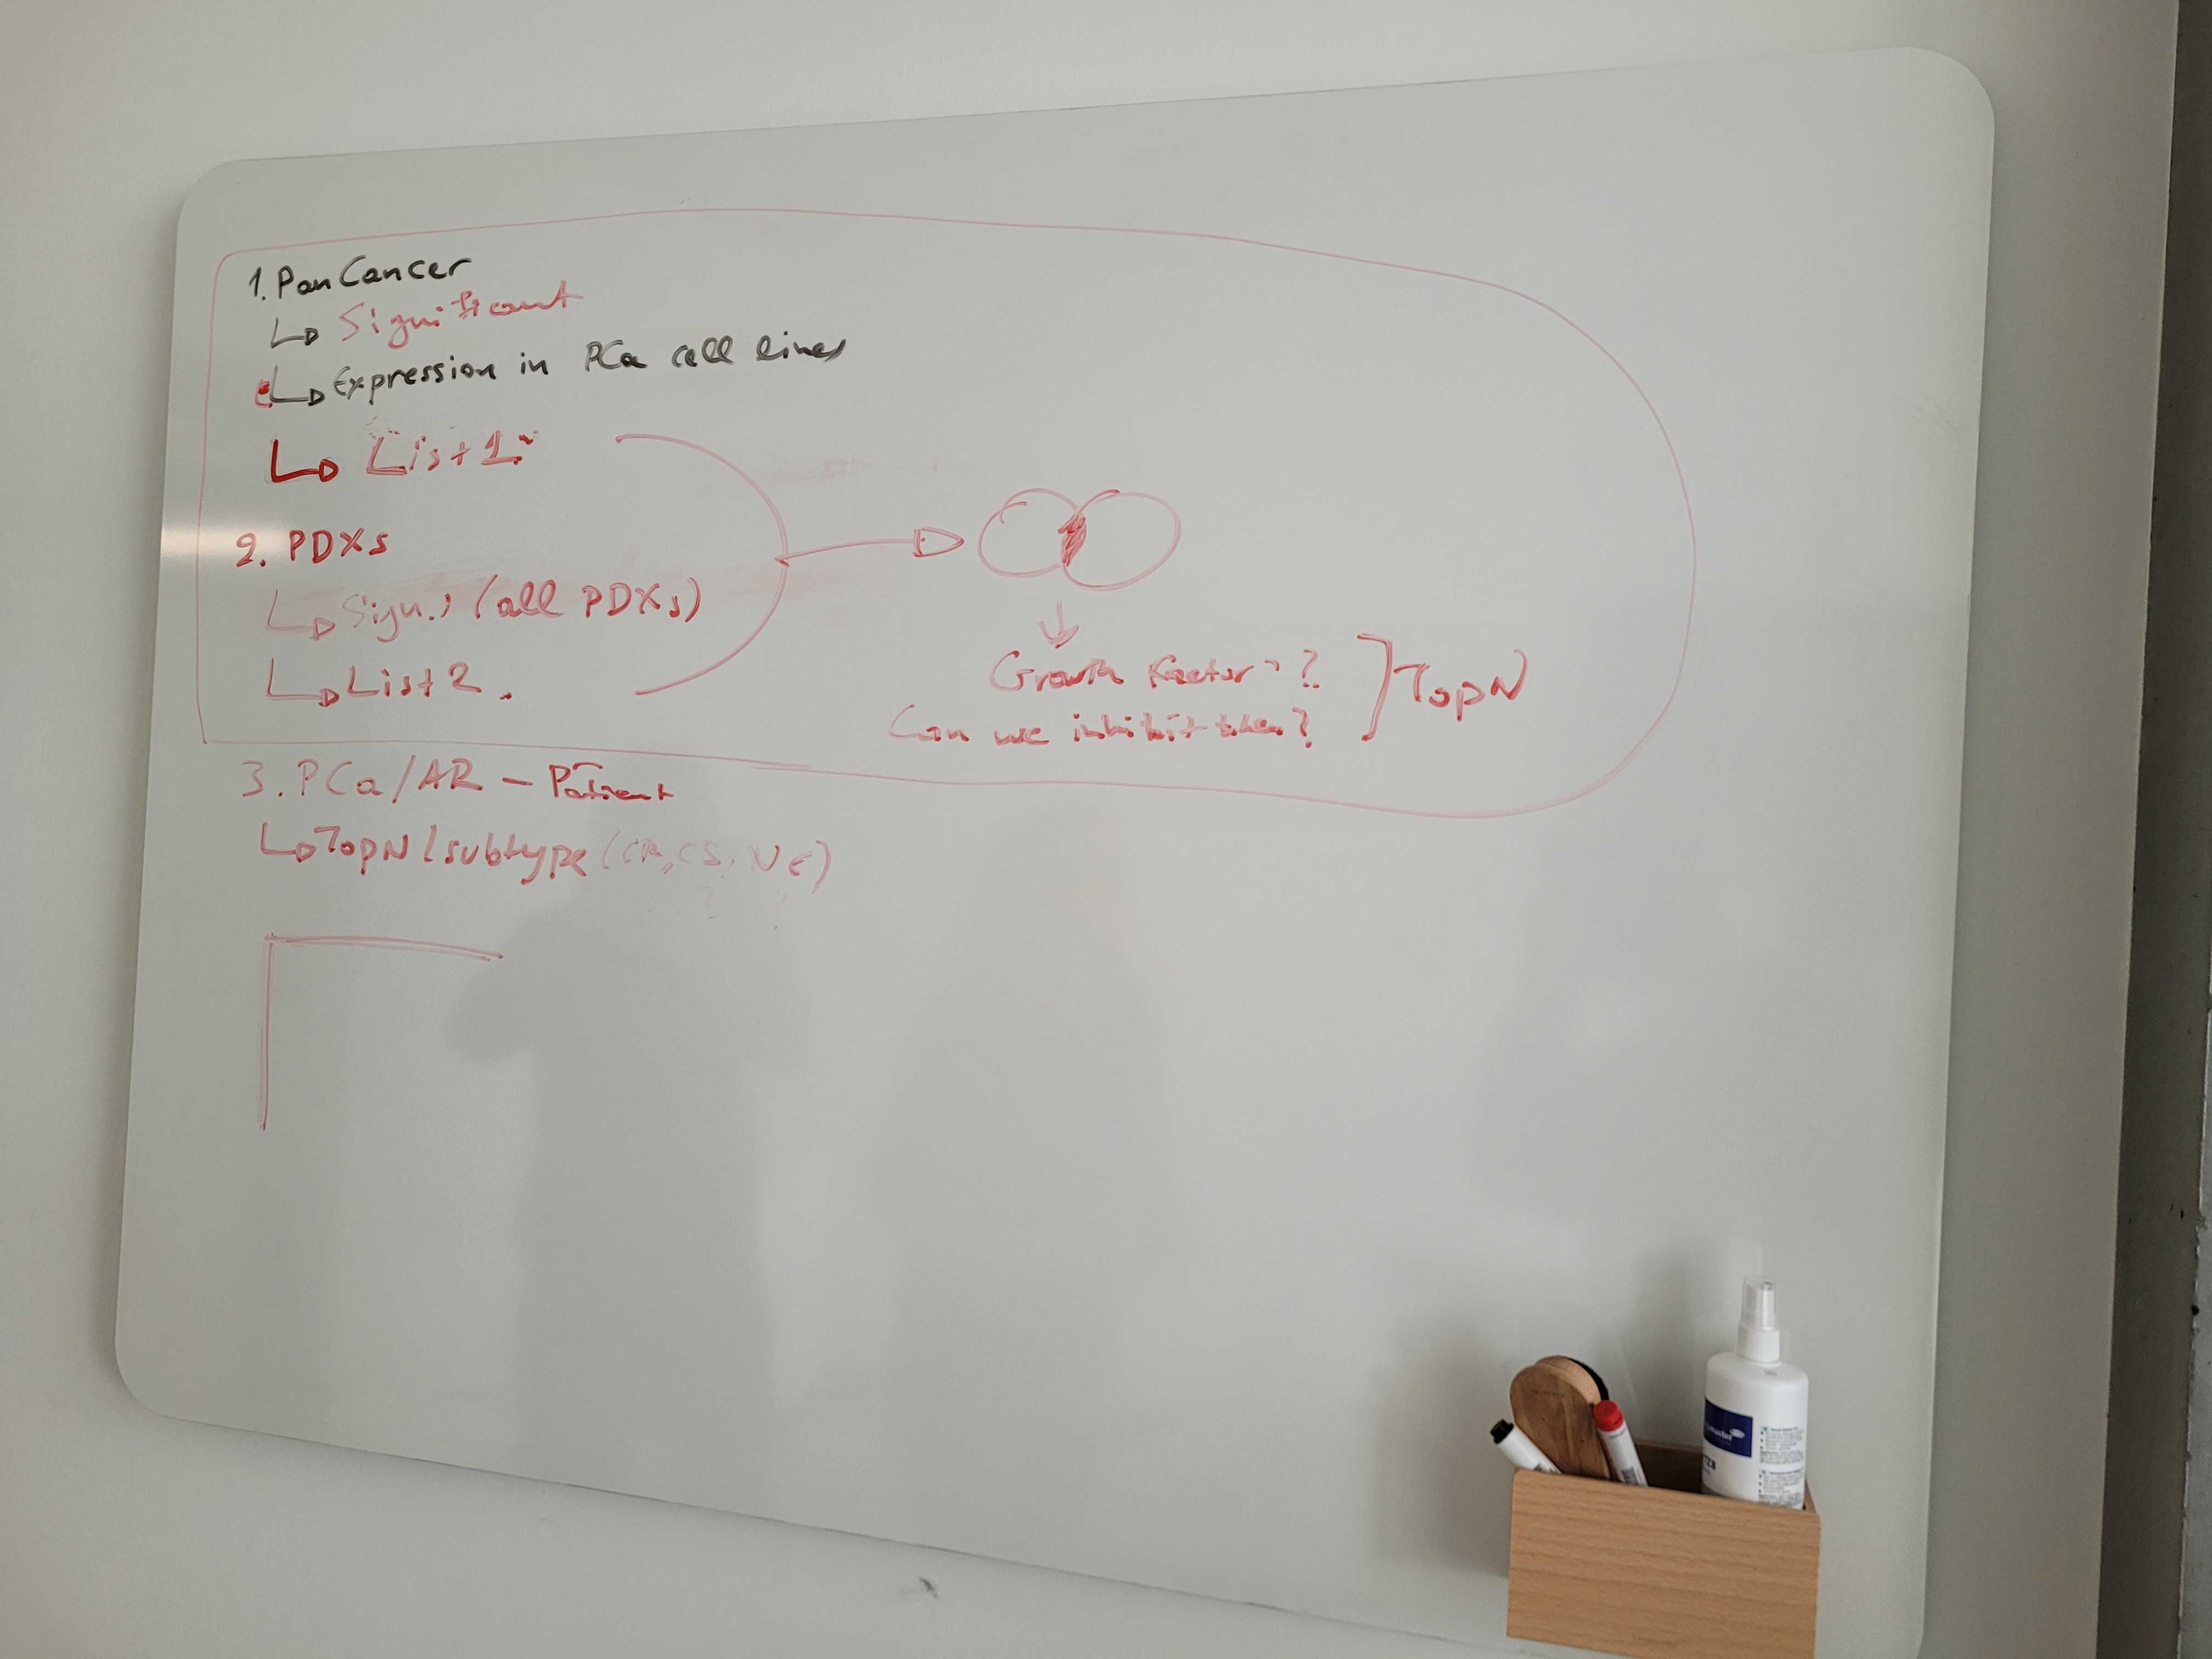 1. PanCancer
Significant
Expression in PCa cell lines
List 1
2. PDXs
Sign. (all PDXs)
List 2.
Growth factor ?
Can we inhibit them?
TopN
3. PCa/AR - Patient
TopN/subtype (CR, CS, NE)